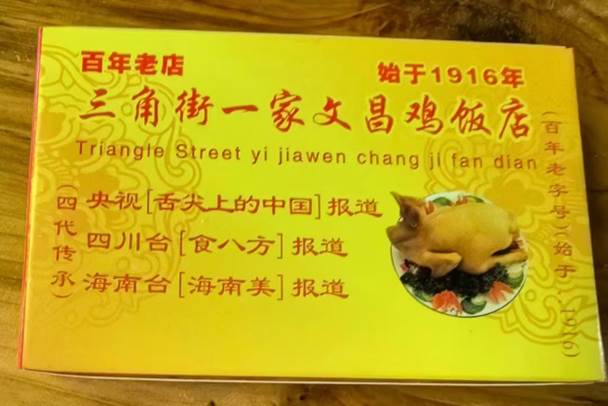 百年老店
始于1916年
三角街一家文昌鸡饭店
Triangle Street yi jiawen chang ji fan dian
(四代传承)
央视[舌尖上的中国]报道
四川台[食八方]报道
海南台[海南美]报道
(百年老字号)始于1916)